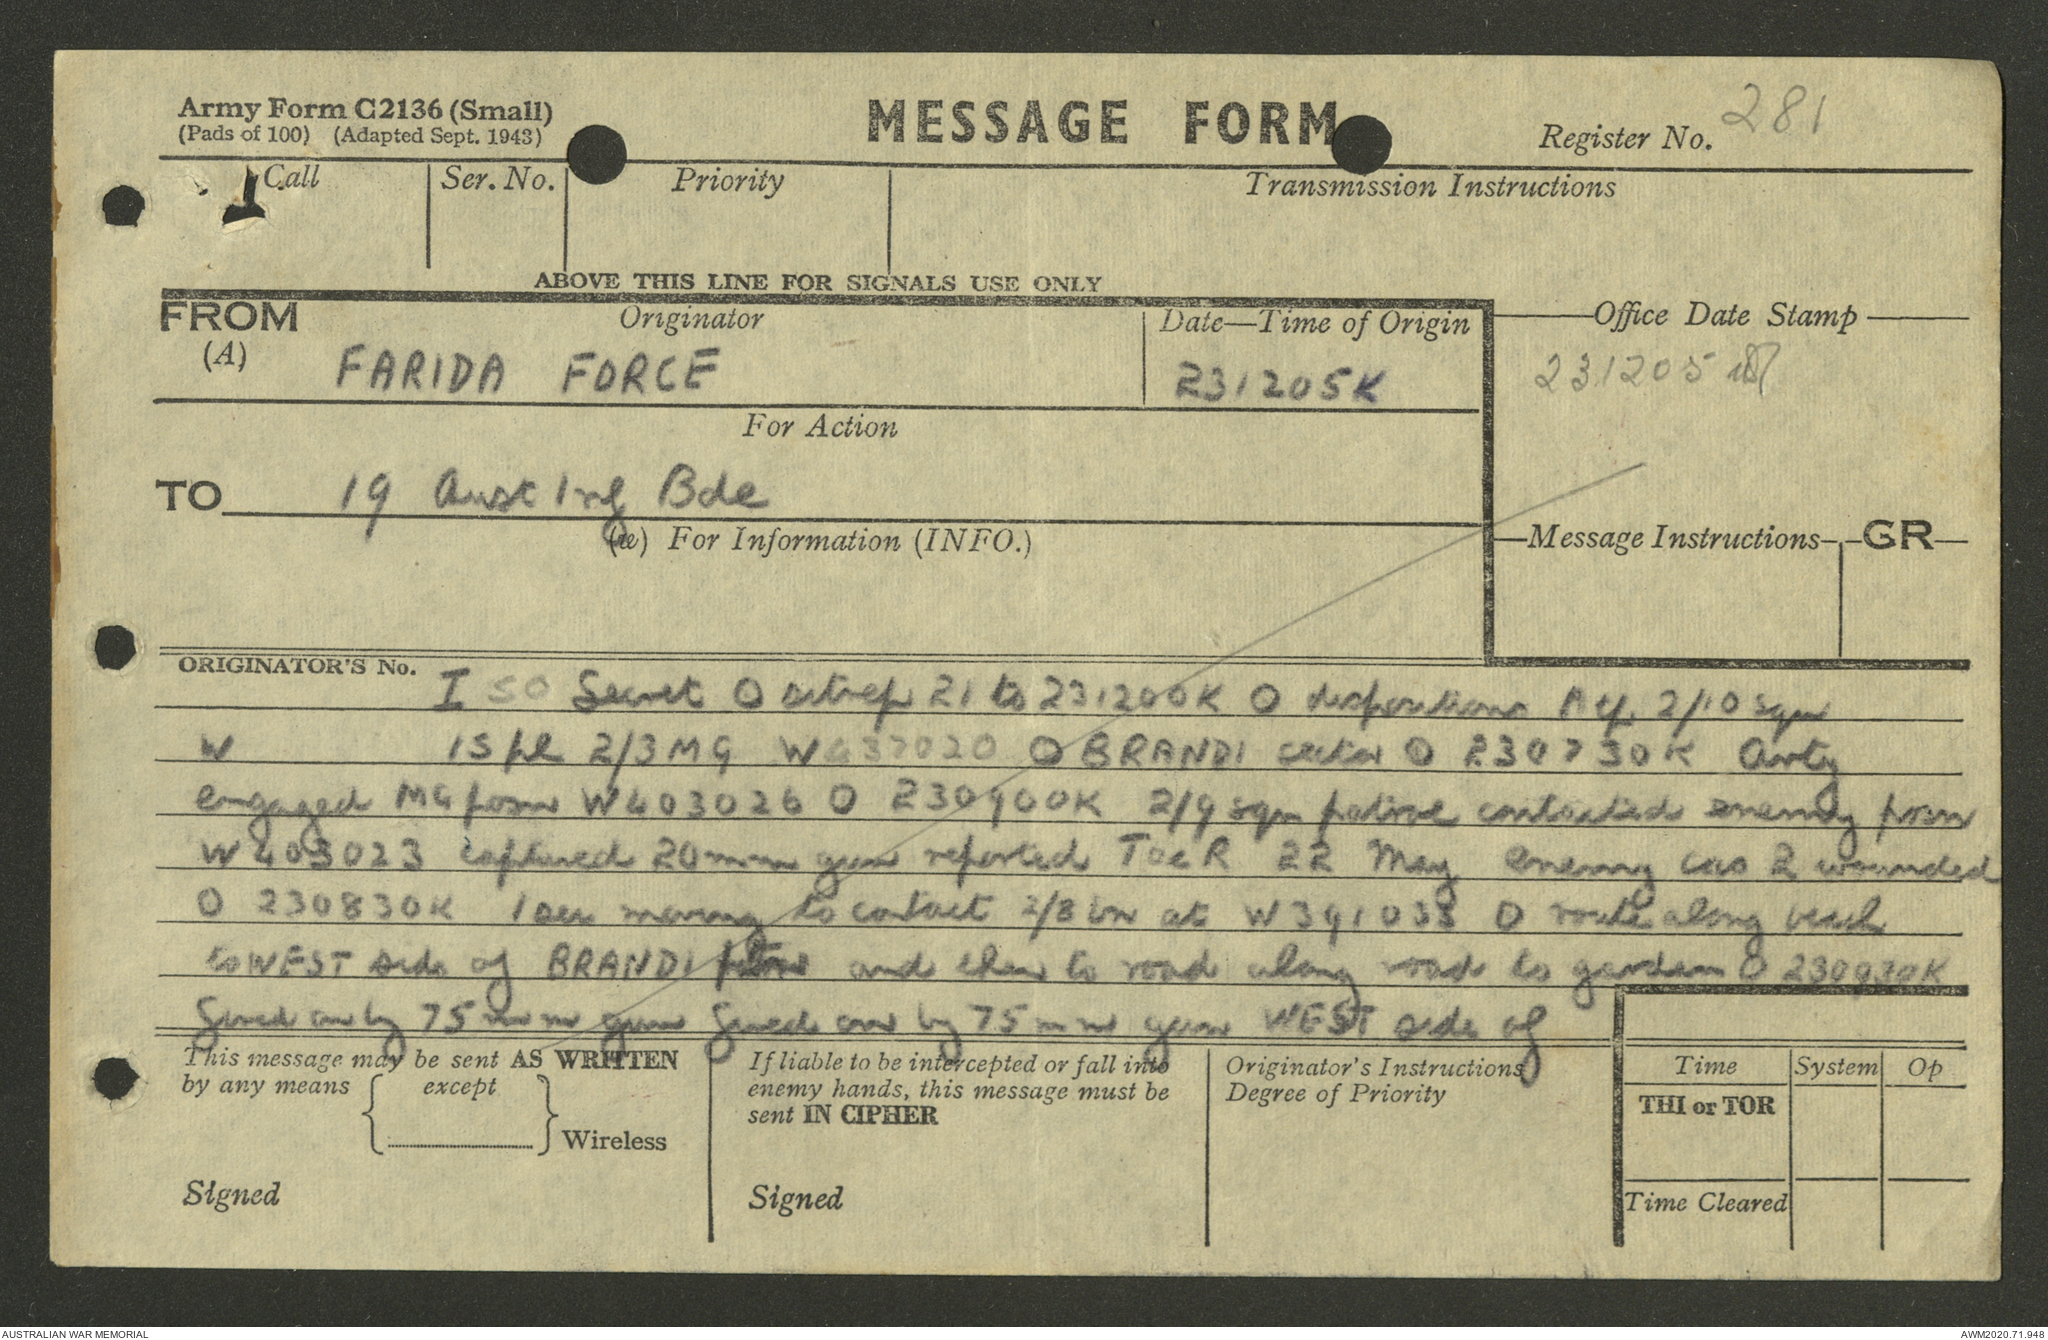 Army Form C2136 (Small)
(Pads of 100) (Adapted Sept. 1943)
MESSAGE FORM
Register No. 281
Call
Ser. No.
Priority
Transmission Instructions
ABOVE THIS LINE FOR SIGNALS USE ONLY
FROM
(A)
Originator
FARIDA FORCE
Date—Time of Origin
231205K
Office Date Stamp
231205
For Action
TO 19 Aust Inf Bde
(w) For Information (INFO.)
Message Instructions
GR
ORIGINATOR'S No.
I 50 Secret O sitrep 21 to 231200K O dispositions A Tp 2/10 sqn
W 15 pl 2/3 MG W437020 O BRANDI sector O 230730K Arty
engaged MG posn W403026 O 230900K 2/9 sqn patrol contacted enemy posn
W403023 captured 20mm gun reported TOER 22 May enemy cas 2 wounded
O 230830K 1 sec moving to contact 2/8 bn at W391033 O route along beach
to WEST side of BRANDI and then to road along road to garden O 230930K
fired on by 75 mm gun fired on by 75 mm gun WEST side of
This message may be sent AS WRITTEN
by any means { except } Wireless
Signed
If liable to be intercepted or fall into
enemy hands, this message must be
sent IN CIPHER
Signed
Originator's Instructions
Degree of Priority
Time
System
Op
THI or TOR
Time Cleared
AUSTRALIAN WAR MEMORIAL
AWM2020.71.948